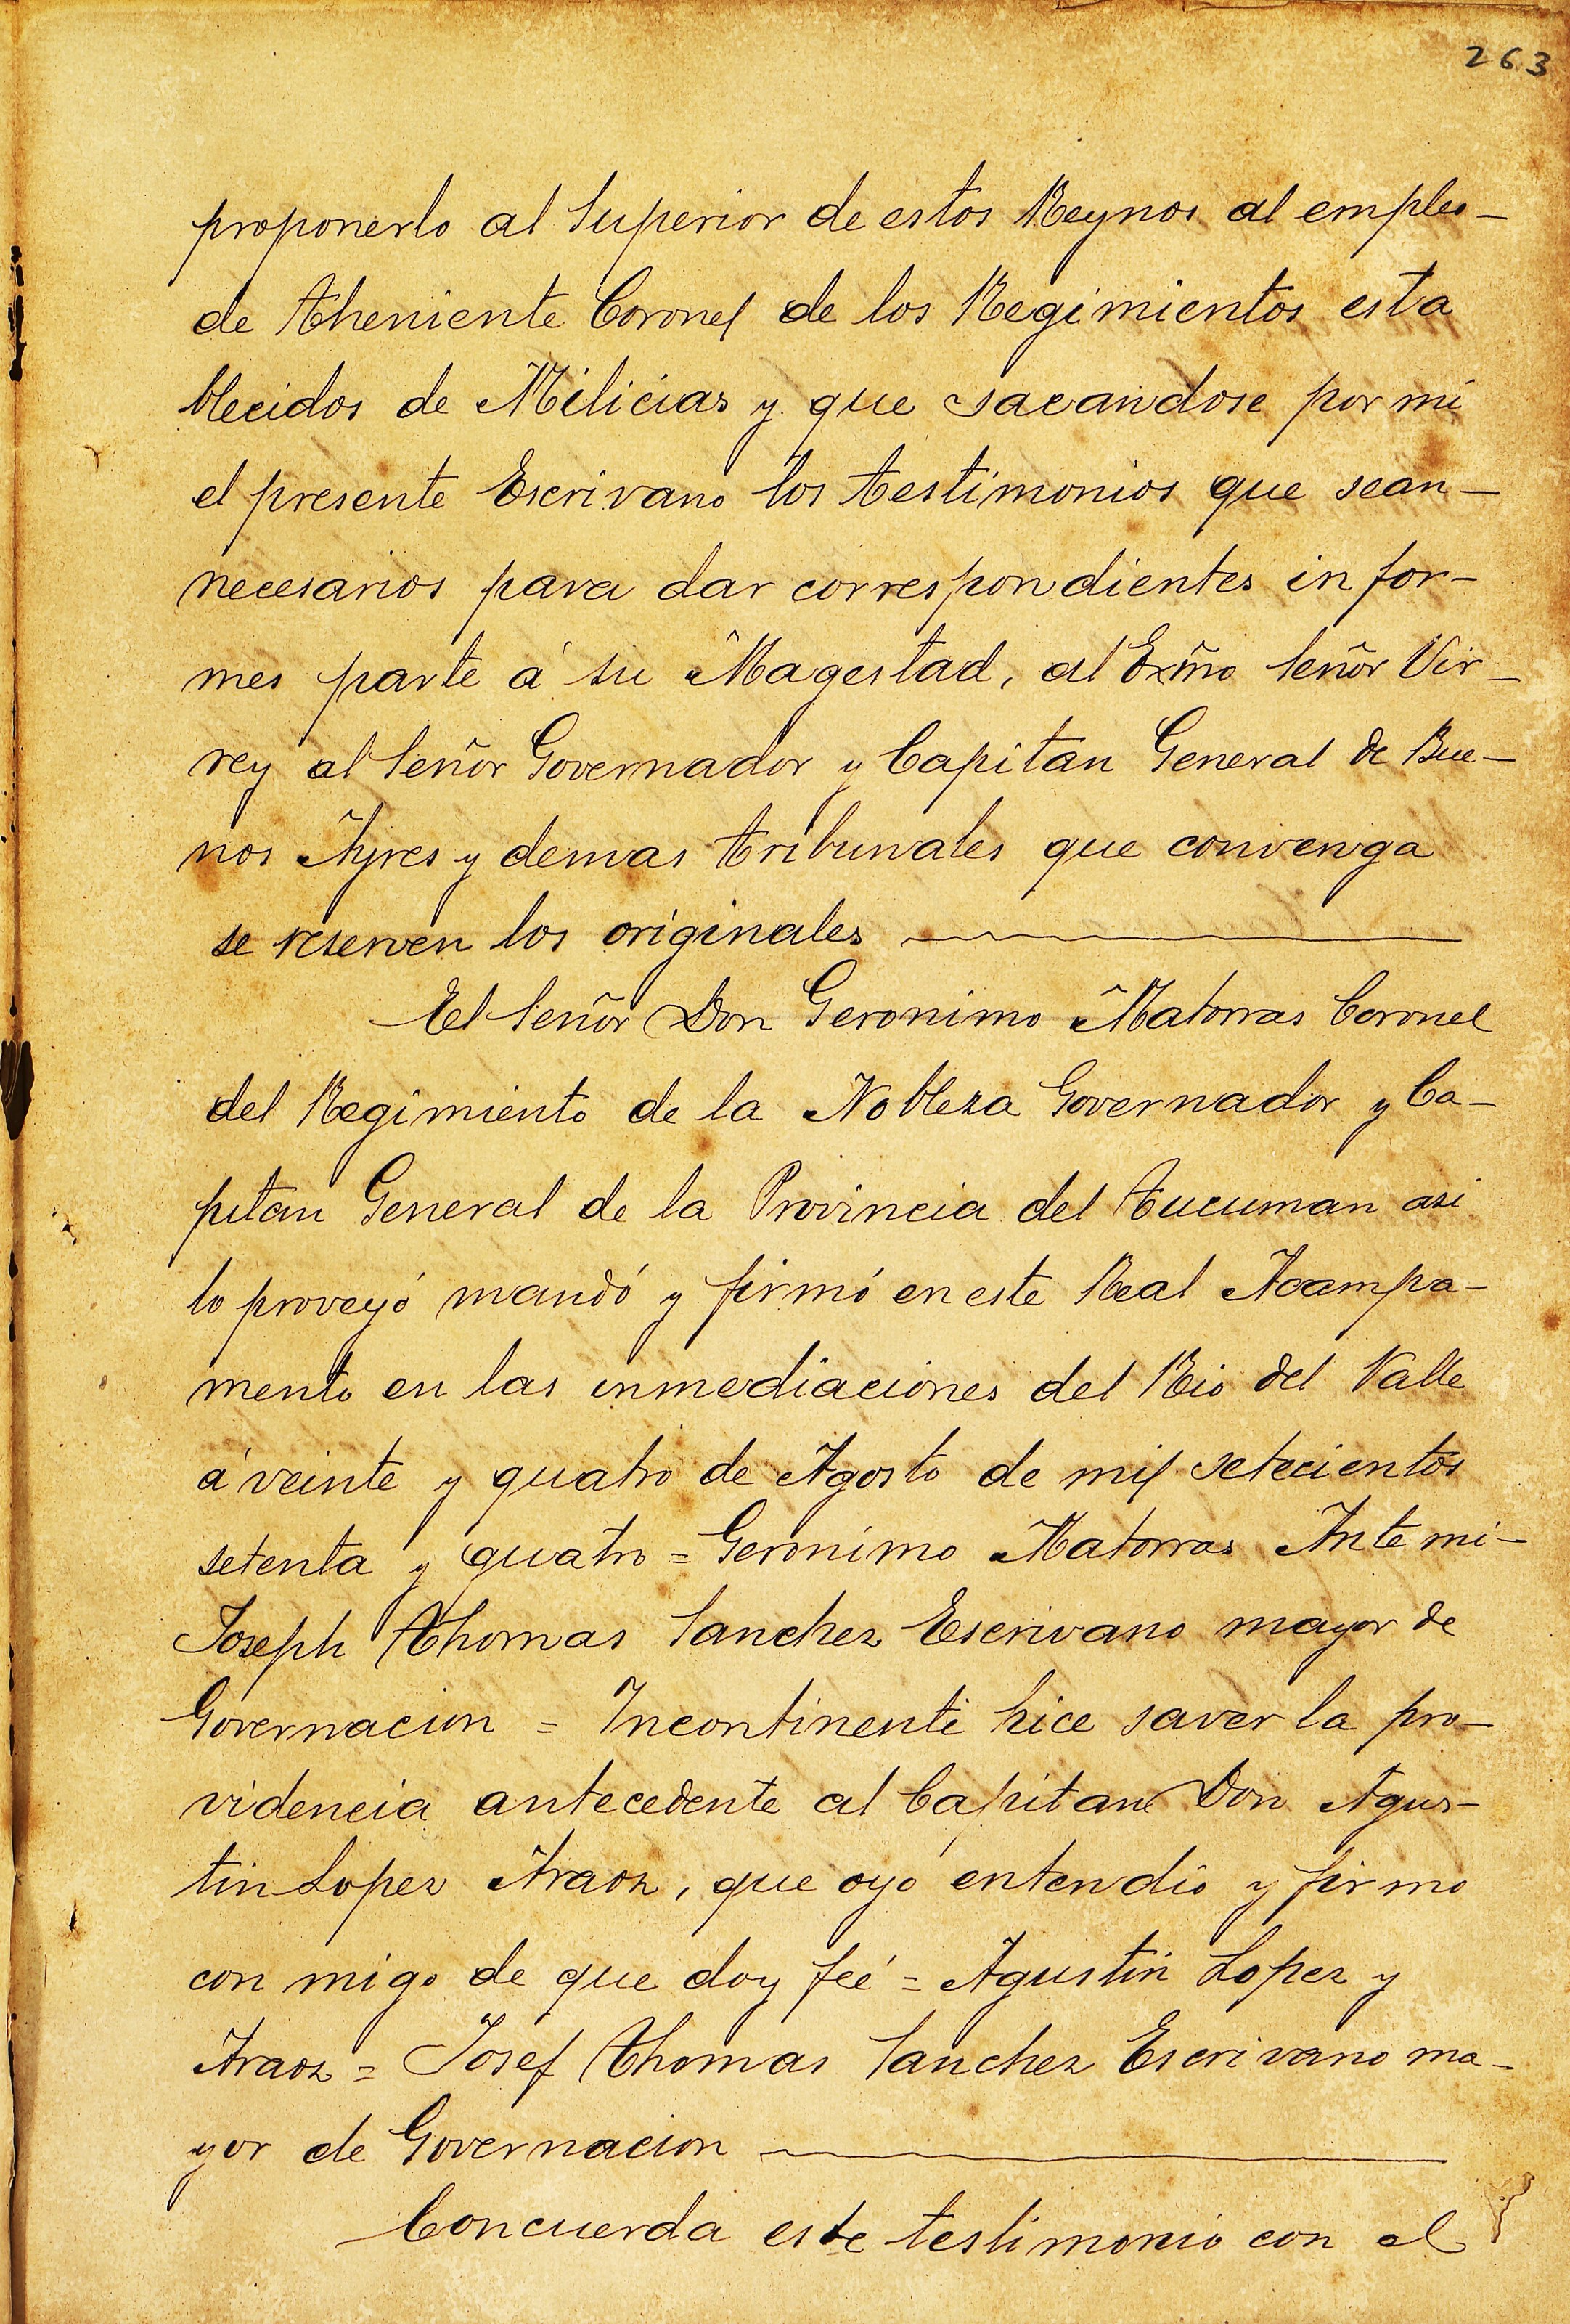 263
proponerlo al Superior de estos Reynos al empleo-
de Theniente Coronel de los Regimientos esta
blecidos de Milicias y que sacandose por mi
el presente Escrivano los testimonios que sean-
necesarios para dar correspondientes infor-
mes parte á su Magestad, al Exmõ Señor Vir-
rey al Señor Governador y Capitan General de Bue-
nos Ayres y demas tribunales que convenga
se reserven los originales
El Señor Don Geronimo Matorras Coronel
del Regimiento de la Nobleza Governador y Ca-
pitan General de la Provincia del Tucuman asi
lo proveyó mandó y firmó en este Real Acampa-
mento en las inmediaciones del Rio del Valle
á veinte y quatro de Agosto de mil setecientos
setenta y quatro = Geronimo Matorras Ante mi-
Joseph Thomas Sanchez Escrivano mayor de
Governacion = Incontinenti hice saver la pro-
videncia antecedente al Capitan Don Agus-
tin Lopez Araoz, que oyó entendió y firmo
con migo de que doy feé = Agustin Lopez y
Araoz = Josef Thomas Sanchez Escrivano ma-
yor de Governacion
Concuerda este testimonio con el